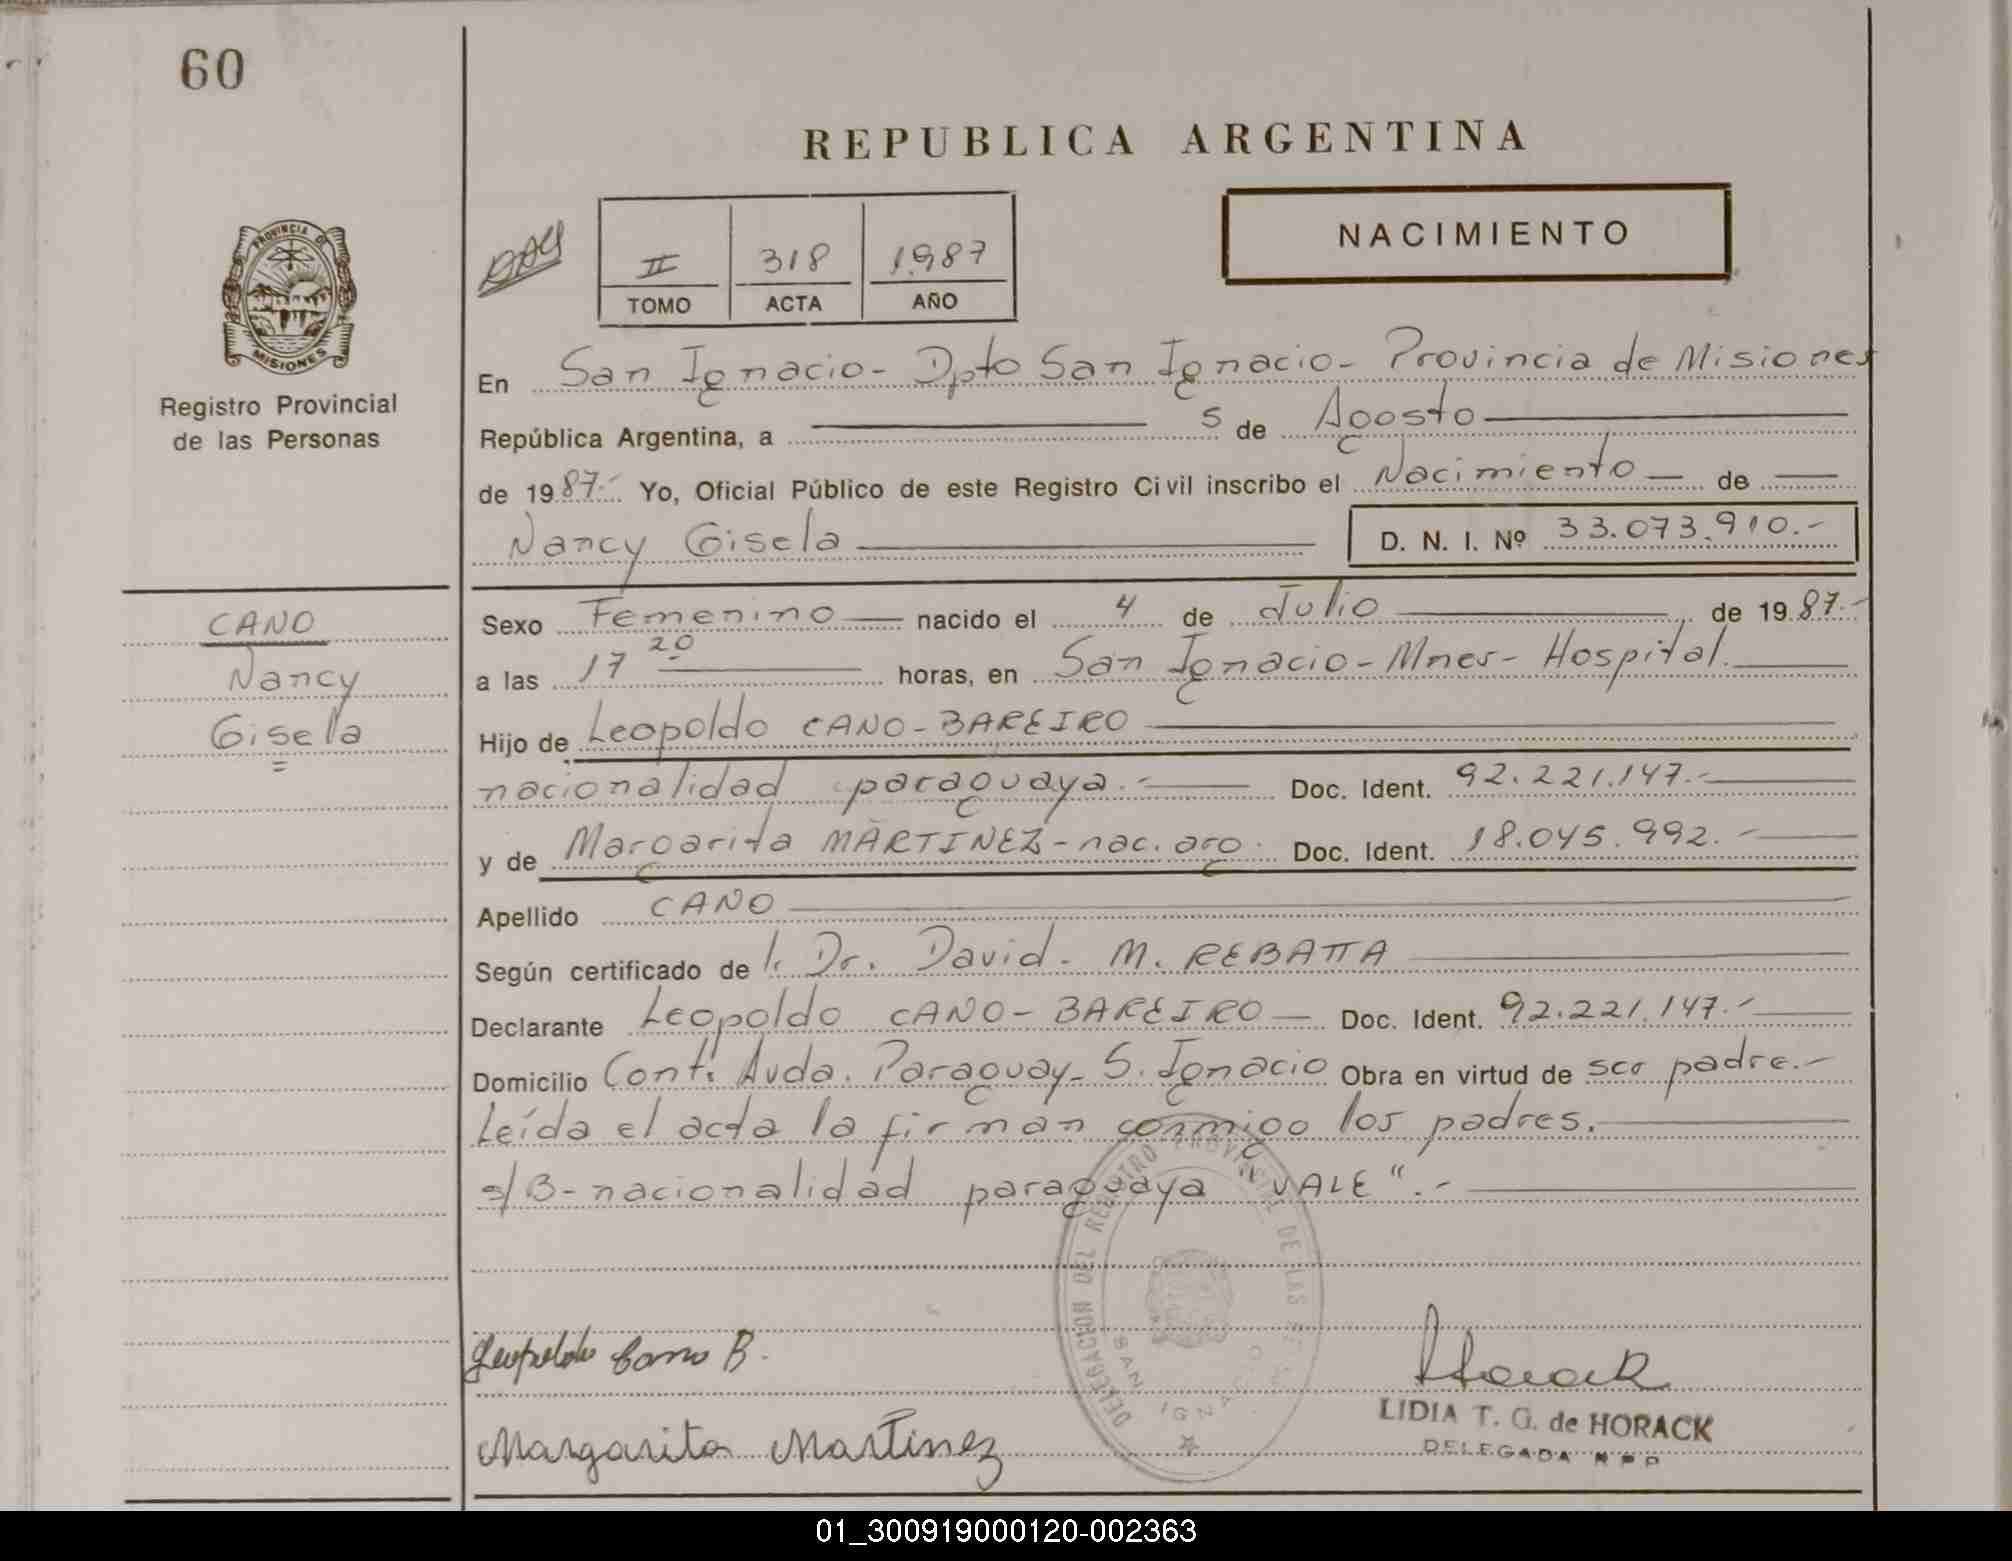 60
REPUBLICA ARGENTINA
NACIMIENTO
II 318 1987
TOMO ACTA AÑO
PROVINCIA DE MISIONES
Registro Provincial
de las Personas
En San Ignacio - Dpto San Ignacio - Provincia de Misiones
República Argentina, a 5 de Agosto
de 1987.- Yo, Oficial Público de este Registro Civil inscribo el Nacimiento de
Nancy Gisela D. N. I. Nº 33.073.910.-
CANO
Nancy
Gisela
Sexo Femenino nacido el 4 de Julio de 1987.-
a las 17 20 horas, en San Ignacio - Mnes - Hospital.
Hijo de Leopoldo CANO - BAREIRO
nacionalidad paraguaya.- Doc. Ident. 92.221.147.-
y de Margarita MARTINEZ - nac. arg. Doc. Ident. 18.045.992.-
Apellido CANO
Según certificado de l. Dr. David. M. REBATTA
Declarante Leopoldo CANO - BAREIRO Doc. Ident. 92.221.147.-
Domicilio Cont. Avda. Paraguay - S. Ignacio Obra en virtud de ser padre.-
Leída el acta la firman conmigo los padres.
s/B - nacionalidad paraguaya VALE".-
DELEGACION DEL REGISTRO PROVINCIAL DE LAS
SAN IGNACIO
Leopoldo Cano B.
Horack
LIDIA T. G. de HORACK
DELEGADA R P P
Margarita Martinez
01_300919000120-002363